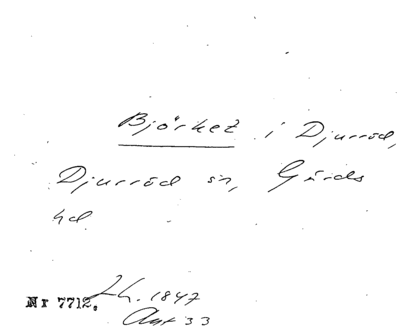 Björket i Djurröd,
Djurröd sn, Gärds
hd
Nr 7712. Lh. 1847
Akt 33